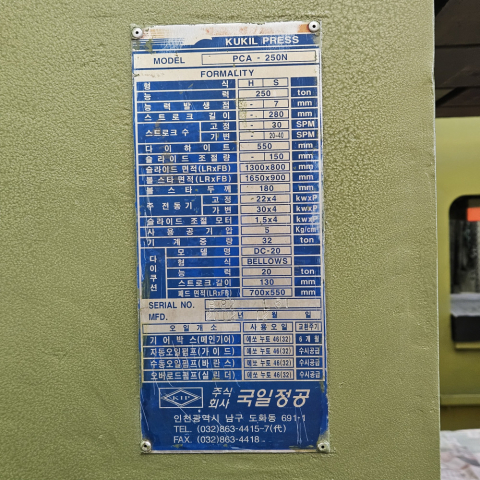 KUKIL PRESS
MODEL PCA - 250N
FORMALITY
형 식 H S
능 력 250 ton
능력발생점 - 7 mm
스트로크 길이 - 280 mm
스트로크 수 고정 - 30 SPM
가변 - 20-40 SPM
다이하이트 550 mm
슬라이드 조절량 - 150 mm
슬라이드 면적(LRxFB) 1300x800 mm
볼스타 면적(LRxFB) 1650x900 mm
볼스타 두께 180 mm
주 전동기 고정 -22x4 kwxP
가변 30x4 kwxP
슬라이드 조절 모터 1.5x4 kwxP
사용공기압 5 Kg/cm
기계중량 32 ton
다이쿠션 모델명 DC-20
형 식 BELLOWS
능 력 20 ton
스트로크 길이 130 mm
패드 면적(LRxFB) 700x550 mm
SERIAL NO.
MFD. 년 월
오일개소 사용오일 교환주기
기어박스(메인기어) 에쏘 누토 46(32) 6개월
자동오일펌프(가이드) 에쏘 누토 46(32) 수시공급
수동오일펌프(바란스) 에쏘 누토 46(32) 수시공급
오버로드펌프(실린더) 에쏘 누토 46(32) 수시공급
KIP 주식회사 국일정공
인천광역시 남구 도화동 691-1
TEL. (032)863-4415-7(代)
FAX. (032)863-4418